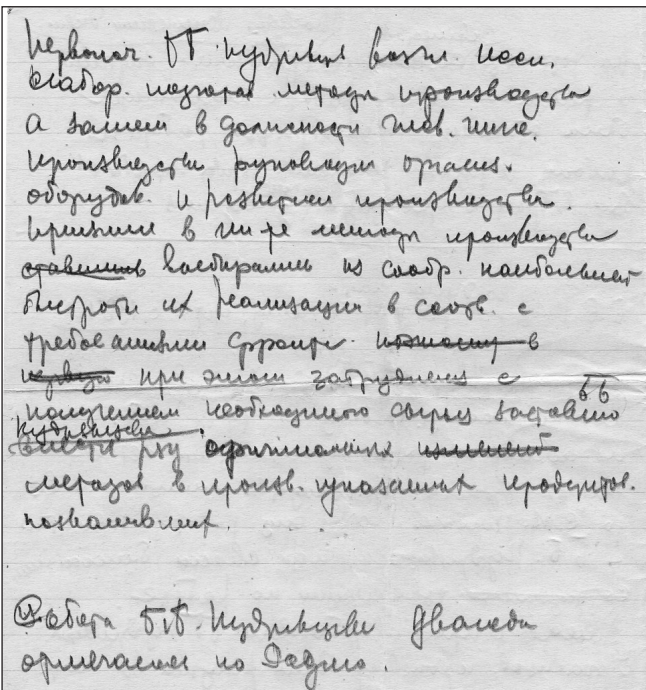 Первонач. Б.Б. Кудрявцев возгл.
методы производства
а затем в должности глав. инж.
производства руководил органиs.
оборудов. и развитием производства.
в методы производства
ставились выбирались из сообр. наибольшей
быстроты их реализации в соотв. с
требованиями фронта. в
первую при этом затруднения с
получением необходимого сырья заставило ББ
Кудрявцева
внести ряд оригинальных изменений
методов в произв. указанных продуктов.
позволивших.
Работа Б.Б. Кудрявцева дважды
отмечалась по Радио.